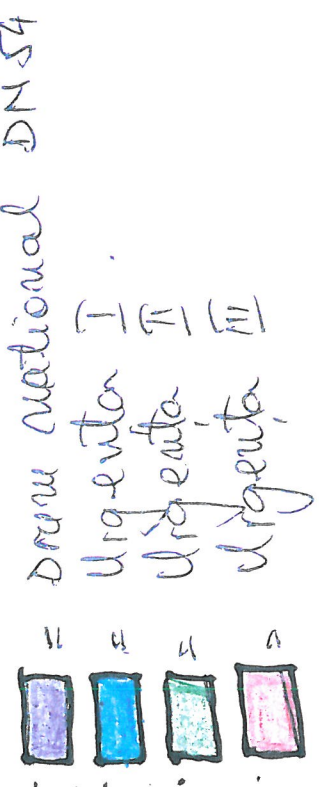 = Drum national DN54
= Urgenta (I)
= Urgenta (II)
= Urgența (III)